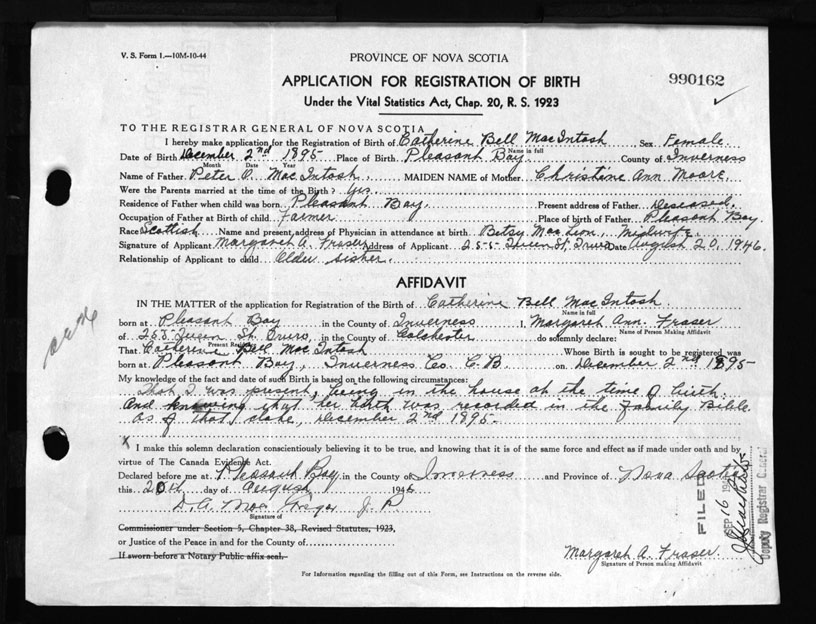 V. S. Form 1.—10M-10-44
PROVINCE OF NOVA SCOTIA
990162
APPLICATION FOR REGISTRATION OF BIRTH
Under the Vital Statistics Act, Chap. 20, R. S. 1923
TO THE REGISTRAR GENERAL OF NOVA SCOTIA
I hereby make application for the Registration of Birth of Catherine Bell MacIntosh Sex Female
Name in full
Date of Birth December 2nd 1895 Place of Birth Pleasant Bay County of Inverness
Month Date Year
Name of Father Peter D. MacIntosh MAIDEN NAME of Mother Christine Ann Moore
Were the Parents married at the time of the Birth? Yes.
Residence of Father when child was born Pleasant Bay. Present address of Father Deseased.
Occupation of Father at Birth of child Farmer Place of birth of Father Pleasant Bay.
Race Scottish Name and present address of Physician in attendance at birth Betsy MacLeon, Midwife.
Signature of Applicant Margaret A. Fraser Address of Applicant 255 Queen St. Truro Date August 20, 1946.
Relationship of Applicant to child Older sister.
AFFIDAVIT
IN THE MATTER of the application for Registration of the Birth of Catherine Bell MacIntosh
Name in full
born at Pleasant Bay in the County of Inverness I, Margaret Ann Fraser
Name of Person making Affidavit
of 255 Queen St. Truro, in the County of Colchester do solemnly declare:
Present Residence
That Catherine Bell MacIntosh Whose Birth is sought to be registered was
born at Pleasant Bay, Inverness Co. C.B. on December 2nd 1895
My knowledge of the fact and date of such Birth is based on the following circumstances:
That I was present, being in the house at the time of birth.
And knowing that her birth was recorded in the Family Bible
as of that date, December 2nd 1895.
X I make this solemn declaration conscientiously believing it to be true, and knowing that it is of the same force and effect as if made under oath and by
virtue of The Canada Evidence Act.
Declared before me at Pleasant Bay in the County of Inverness and Province of Nova Scotia
this 20th day of August 1946
D. A. J. P.
Signature of
Commissioner under Section 5, Chapter 38, Revised Statutes, 1923,
or Justice of the Peace in and for the County of
If sworn before a Notary Public affix seal.
FILED
SEP 16
Deputy Registrar General
Margaret A. Fraser
Signature of Person making Affidavit
For Information regarding the filling out of this Form, see Instructions on the reverse side.